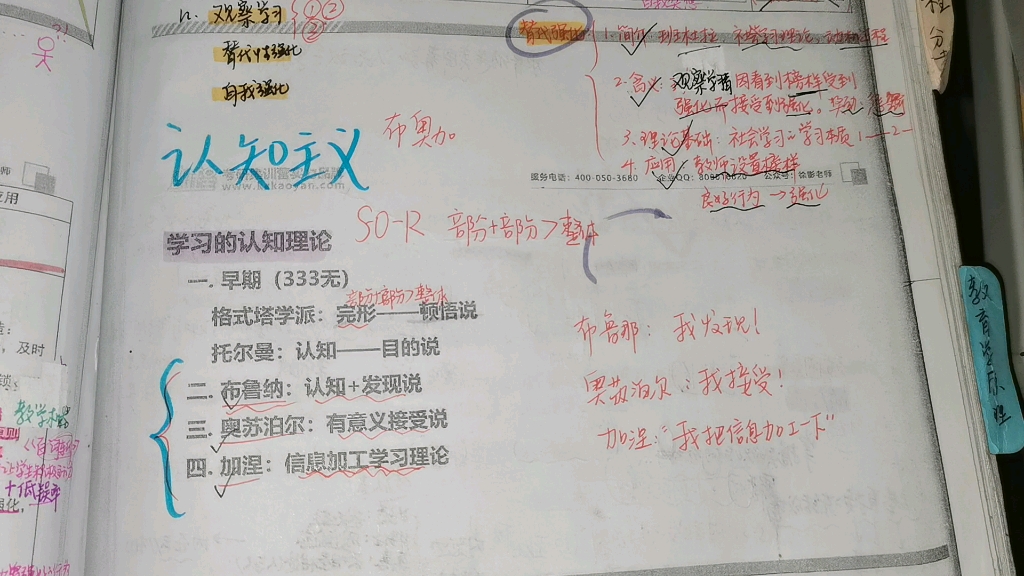 n. 观察学习 ①②
②
替代性强化
自我强化
替代强化
1. 简介: 班杜拉 社会学习理论,
2. 含义: 观察学习者因看到榜样受到
强化而接受到强化!
3. 理论基础: 社会学习 学习本质 1— 2—
4. 应用: 教师设置榜样
良好行为 → 强化
认知主义
布奥加
服务电话: 400-050-3680
学习的认知理论
SO-R 部份+部份>整体
一. 早期 (333无)
部份+部份>整体
格式塔学派: 完形——顿悟说
托尔曼: 认知——目的说
二. 布鲁纳: 认知+发现说
三. 奥苏泊尔: 有意义接受说
四. 加涅: 信息加工学习理论
布鲁那: 我发现!
奥苏泊尔: 我接受!
加涅: “我把信息加工一下”
教育
应用
及时
教学